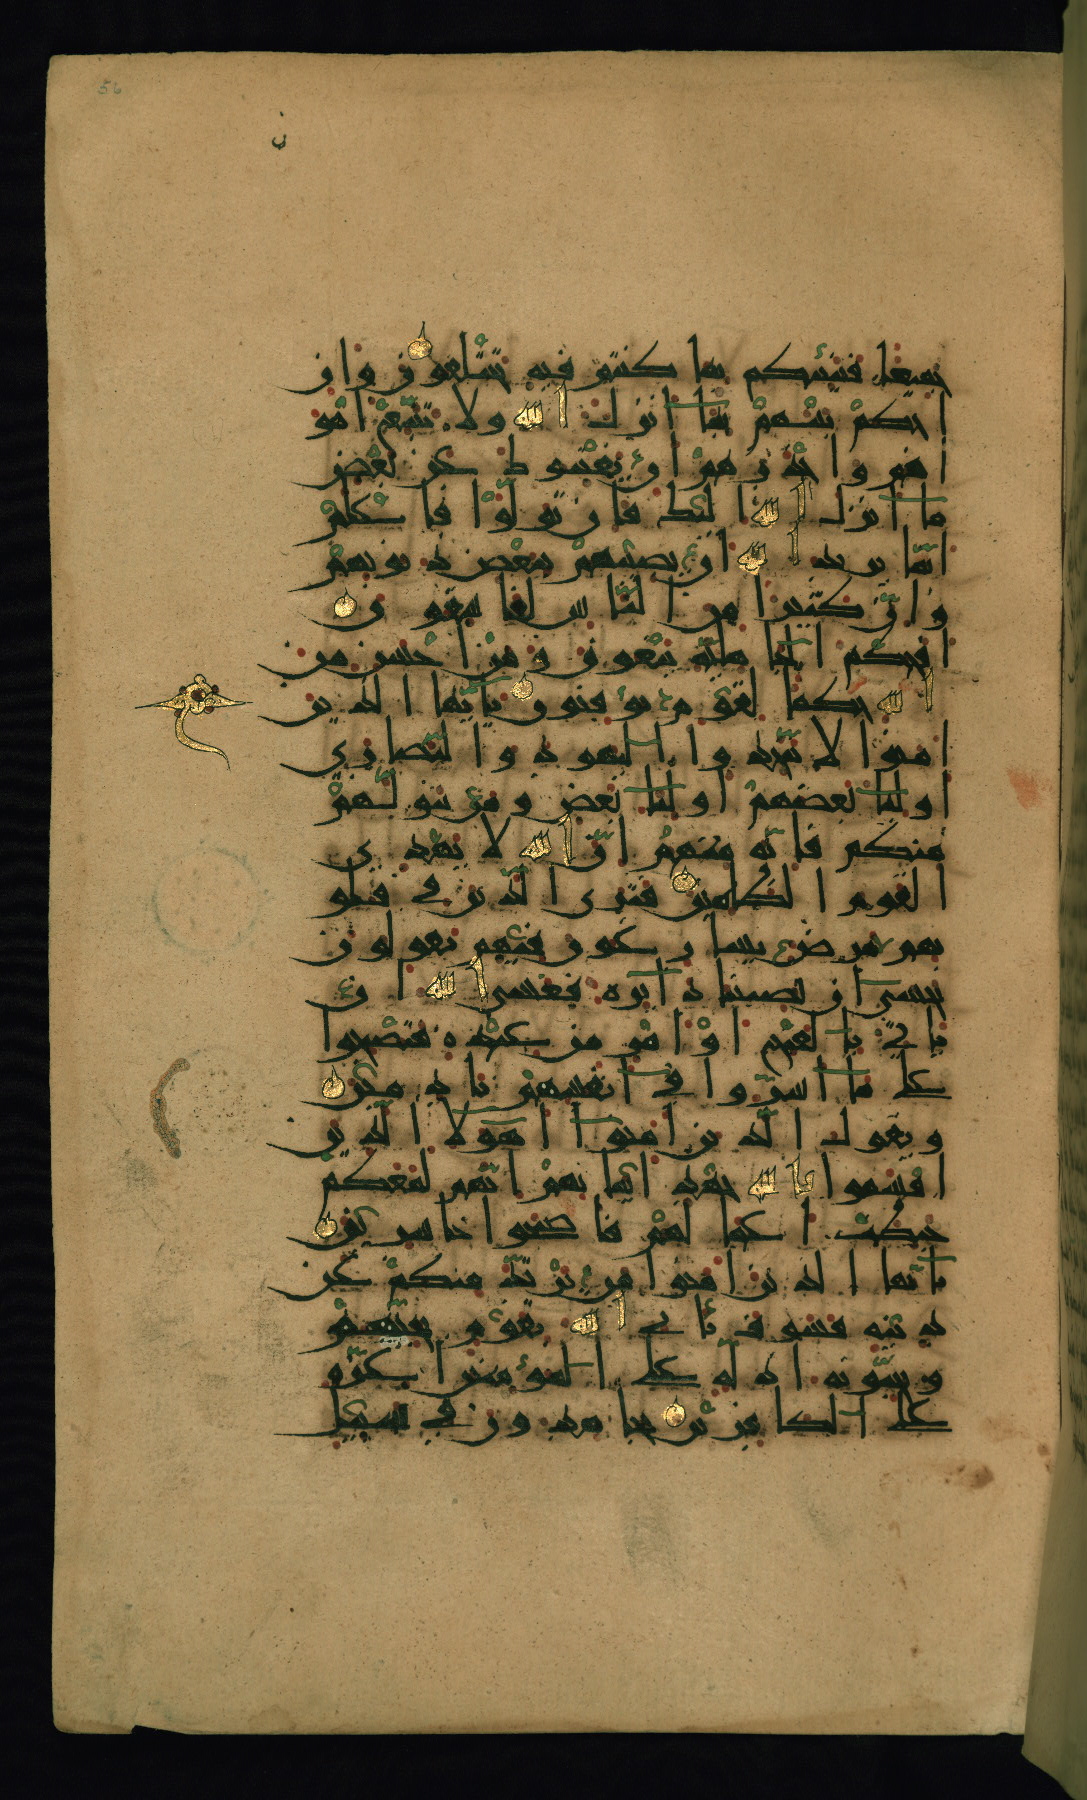 56
ن
جميعا فينبئكم بما كنتم فيه تختلفون وان
احكم بينهم بما انزل الله ولا تتبع اهو
اهم واحذرهم ان يفتنوك عن بعض
ما انزل الله اليك فان تولوا فاعلم
انما يريد الله ان يصيبهم ببعض ذنوبهم
وان كثيرا من الناس لفاسقون
افحكم الجاهلية يبغون ومن احسن من
الله حكما لقوم يوقنون يايها الذين
امنوا لا تتخذوا اليهود والنصارى
اوليا بعضهم اوليا بعض ومن يتولهم
منكم فانه منهم ان الله لا يهدي
القوم الظلمين فترى الذين في قلو
بهم مرض يسارعون فيهم يقولون
نخشى ان تصيبنا دايره فعسى الله ان
ياتي بالفتح او امر من عنده فتصبحوا
على ما اسروا في انفسهم نادمين
ويقول الذين امنوا اهولا الذين
اقسموا بالله جهد ايمانهم انهم لمعكم
حبطت اعمالهم فاصبحوا خاسرين
يايها الذين امنوا من يرتد منكم عن
دينه فسوف ياتي الله بقوم يحبهم
ويحبونه اذله على المومنين اعزه
على الكافرين يجاهدون في سبيل